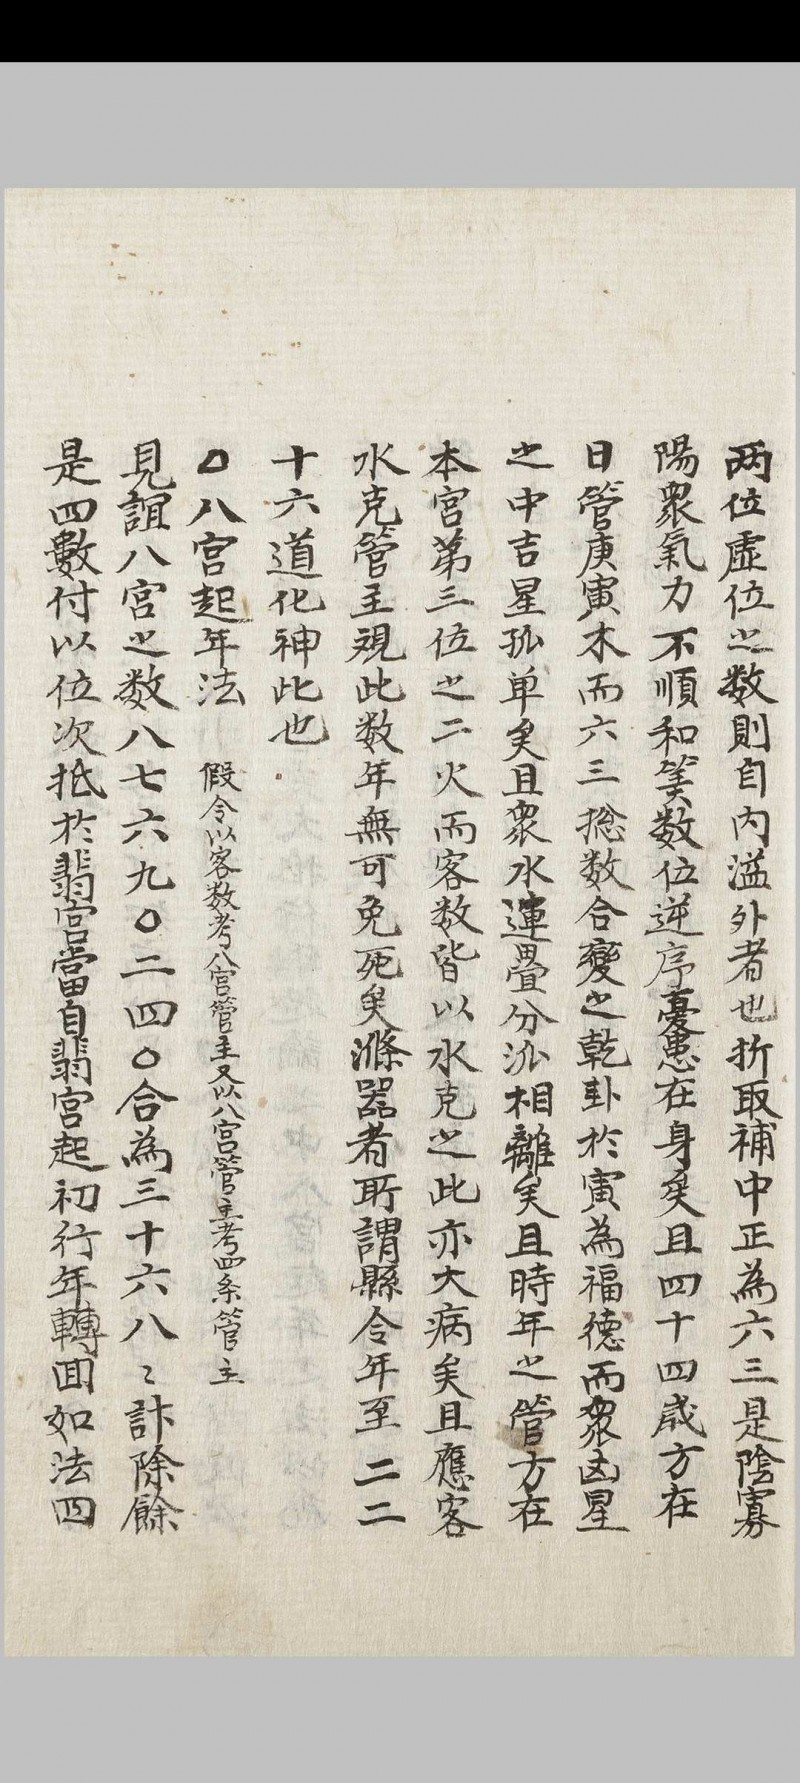 两位虛位之数則自內溢外者也折取補中正為六三是陰寡
陽衆氣力不順和筭数位逆序憂患在身矣且四十四歲方在
日管庚寅木而六三摠数合變之乾卦於寅為福德而衆凶星
之中吉星孤单矣且衆水連疊分派相離矣且時年之管方在
本宮第三位之二火而客数皆以水克之此亦大病矣且應客
水克管主視此数年無可免死矣滌器者所謂縣令年至二二
十六道化神此也
○八宮起年法
假令以客数考八宮管主又以八宮管主考四条管主
見誼八宮之数八七六九〇二四〇合為三十六八〻計除餘
是四數付以位次抵於翡宮當自翡宮起初行年轉囬如法四